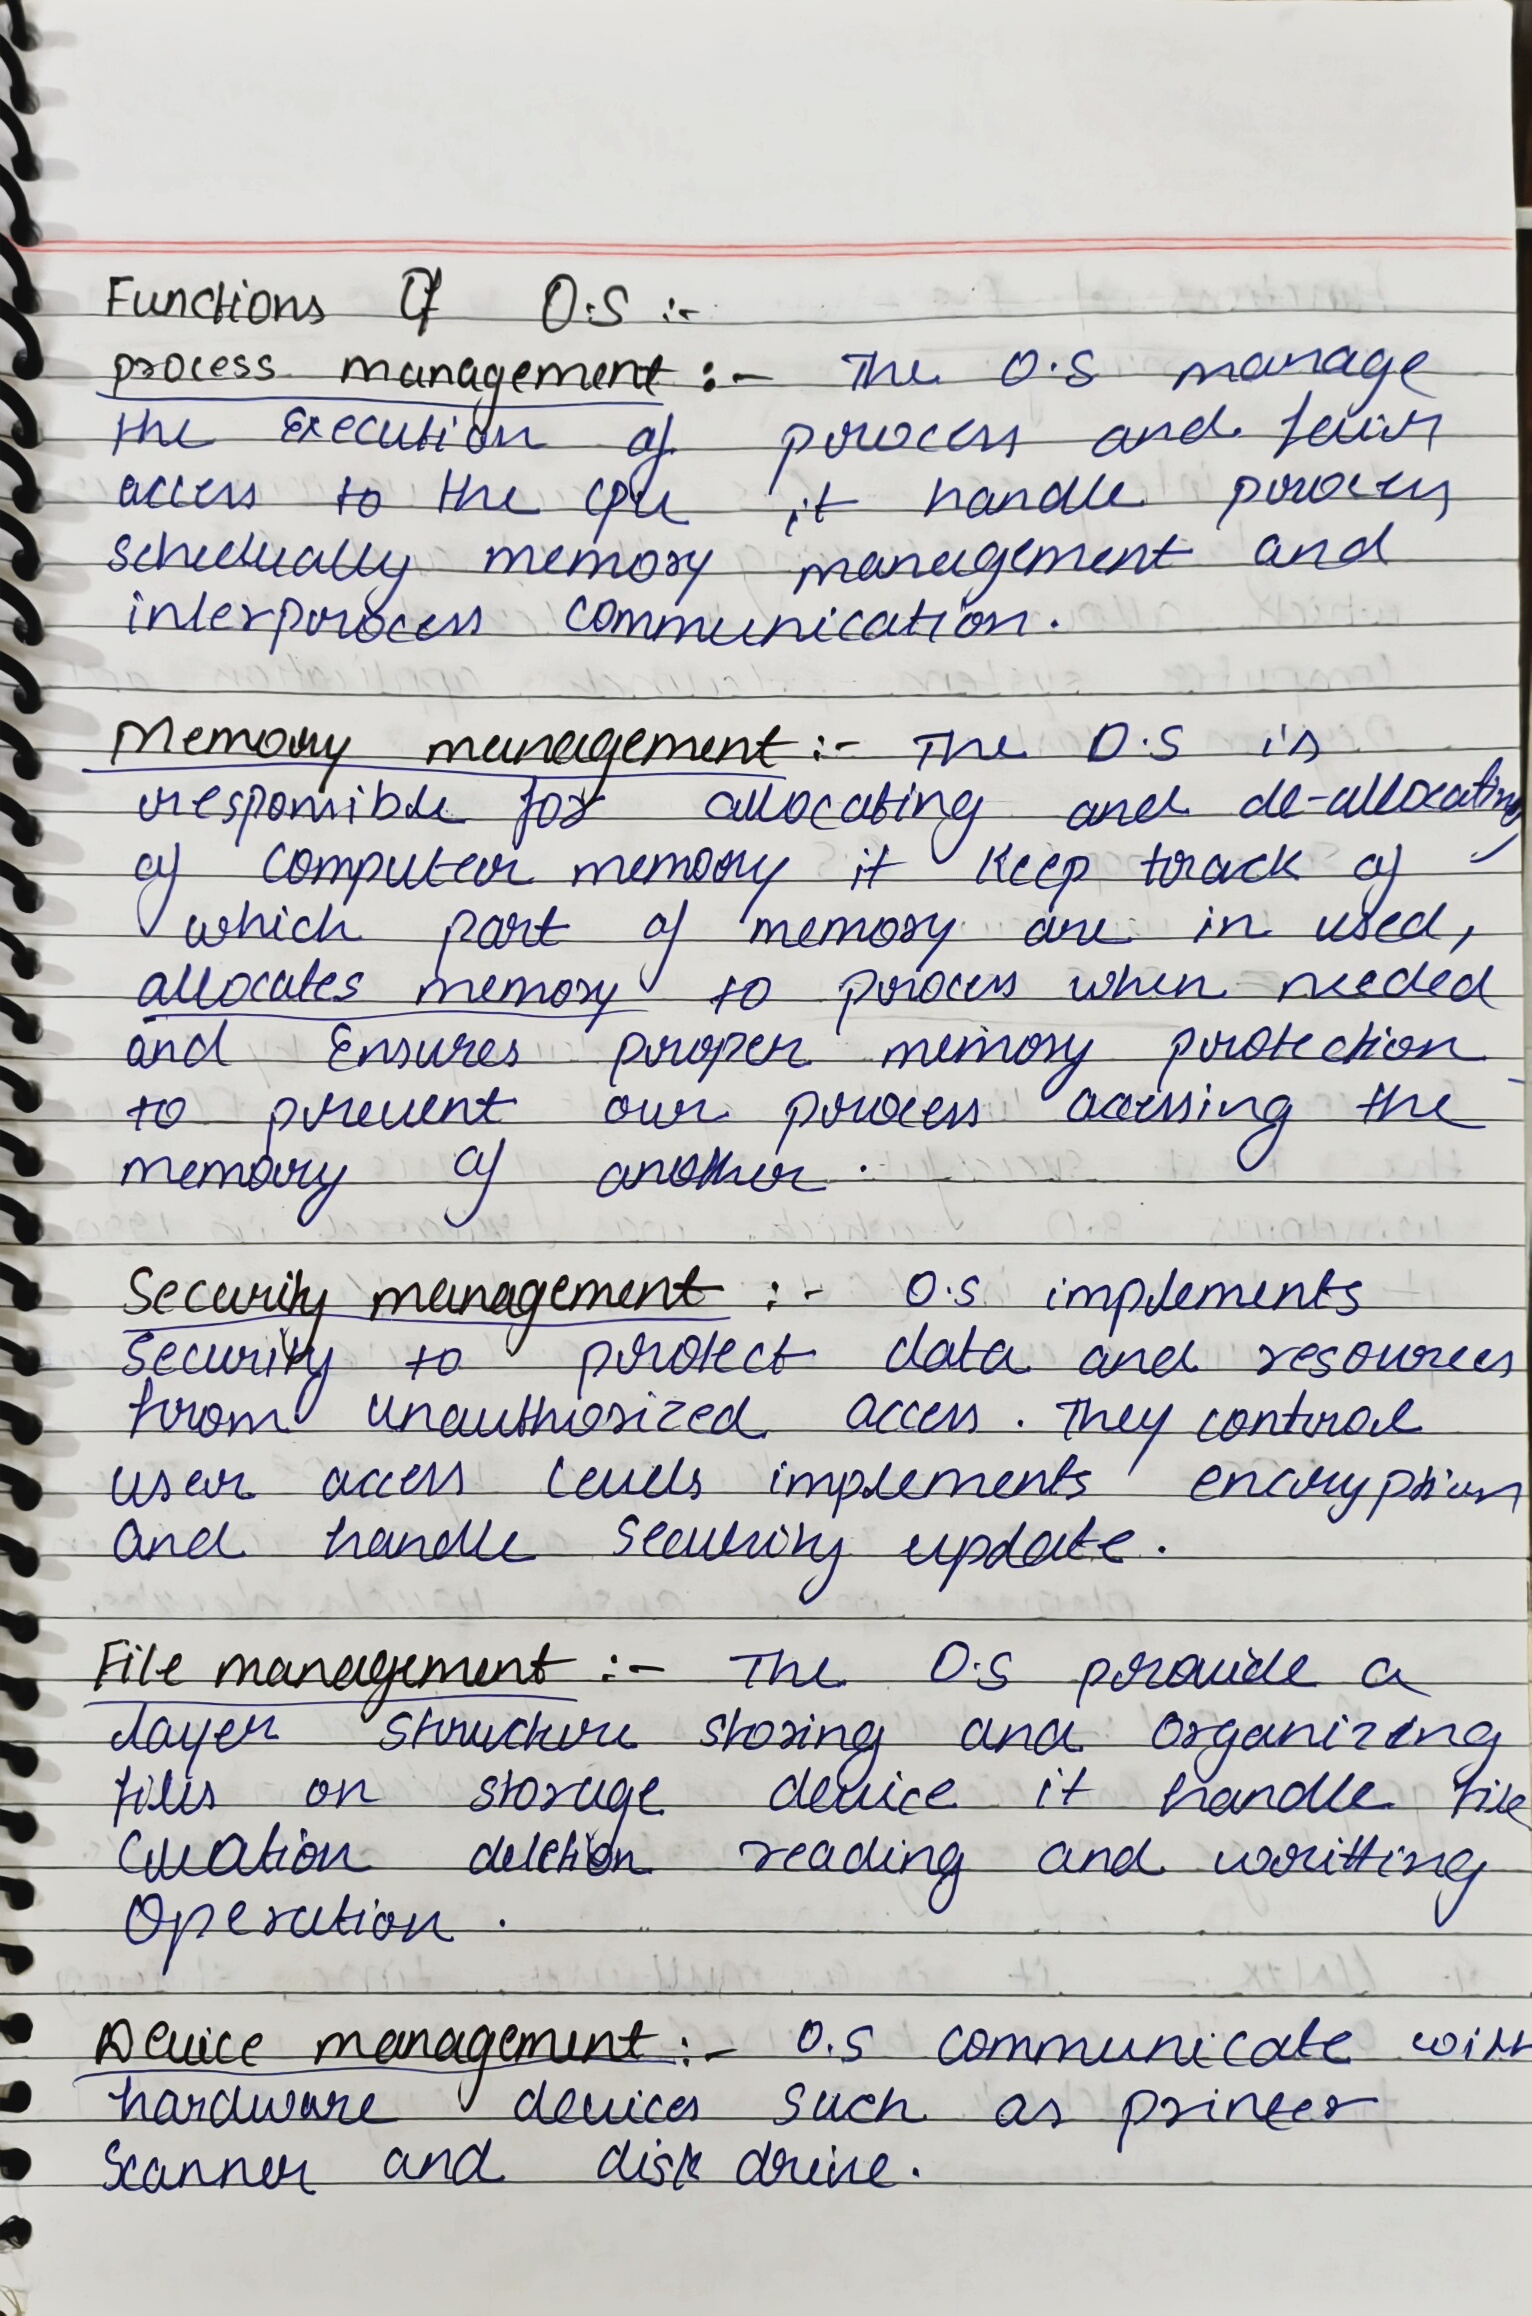 Functions Of O.S :-
process management :- The O.S manage
the Execution of process and fair
access to the cpu it handle process
schedually memory management and
interprocess communication.
Memory management :- The O.S is
responsible for allocating and de-allocating
of computer memory it keep track of
which part of memory are in used,
allocates memory to process when needed
and Ensures proper memory protection
to prevent our process acessing the
memory of another.
Security management :- O.S implements
security to protect data and resources
from unauthorized access. They control
user access levels implements encryption
and handle security update.
File management :- The O.S provide a
layer structure storing and organizing
files on storage device it handle file
creation deletion reading and writting
Operation.
Device management :- O.S communicate with
hardware devices such as printer
scanner and disk drive.